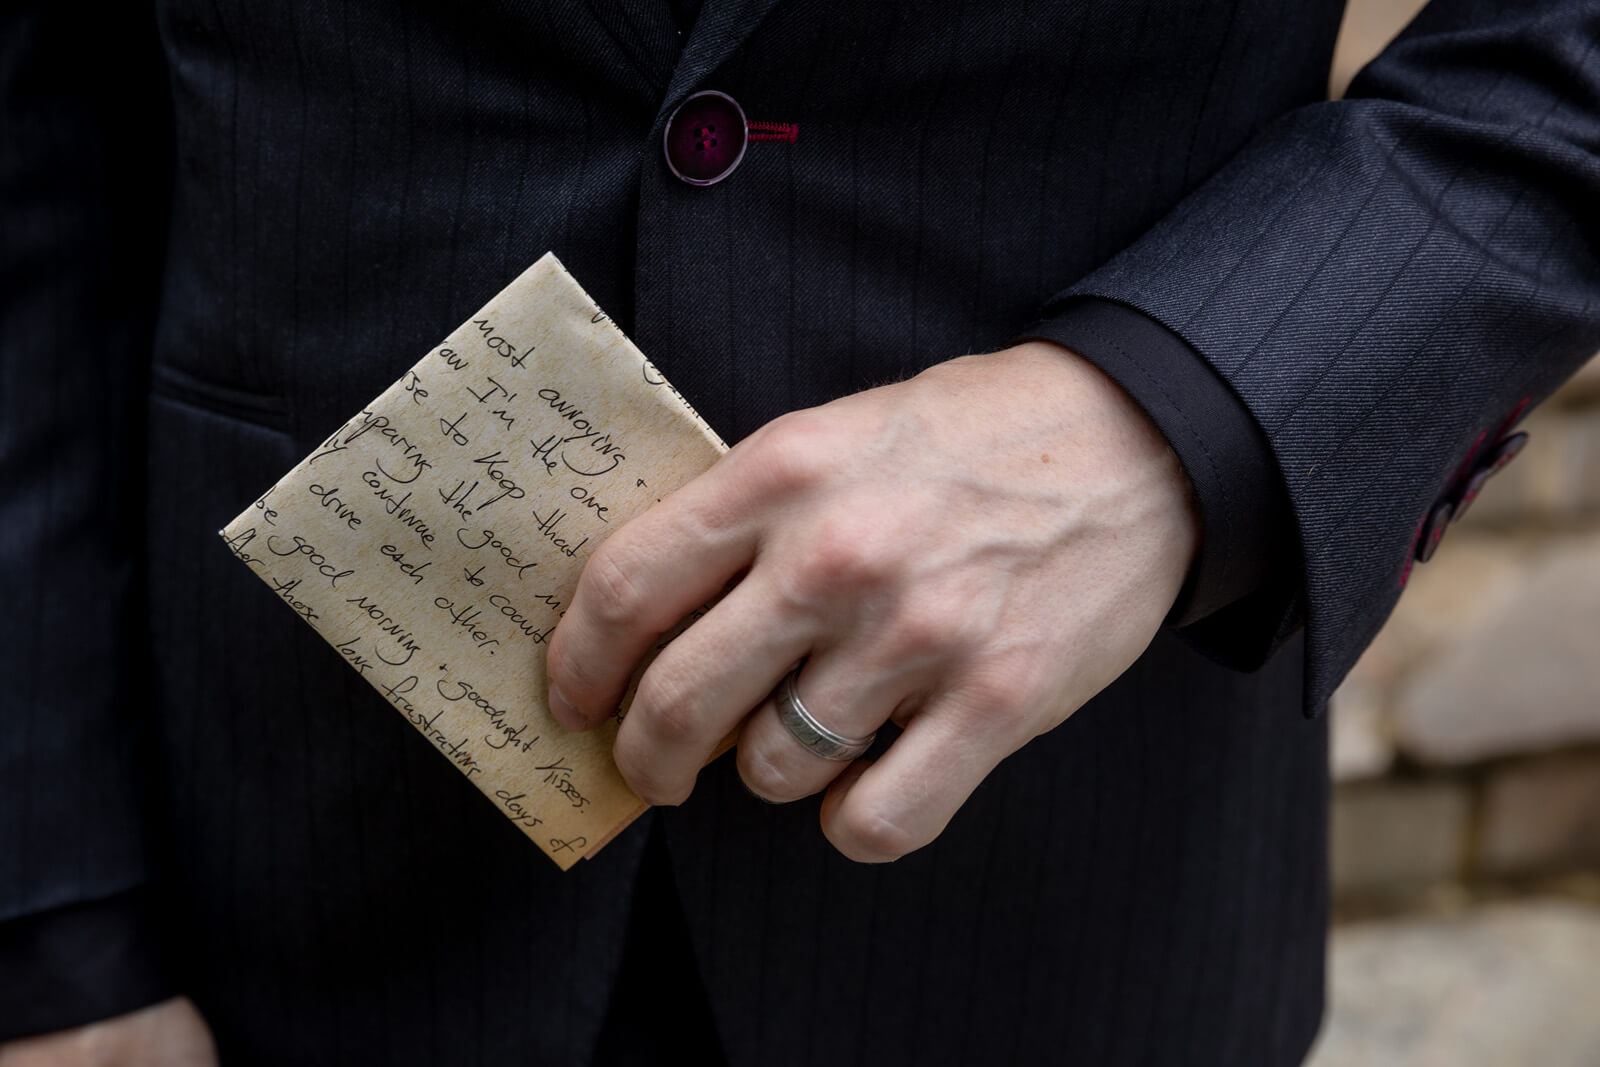 most annoying
I'm the one
to keep that
the good
continue to count
drive each other.
be good morning + goodnight kisses.
those long frustrating days of